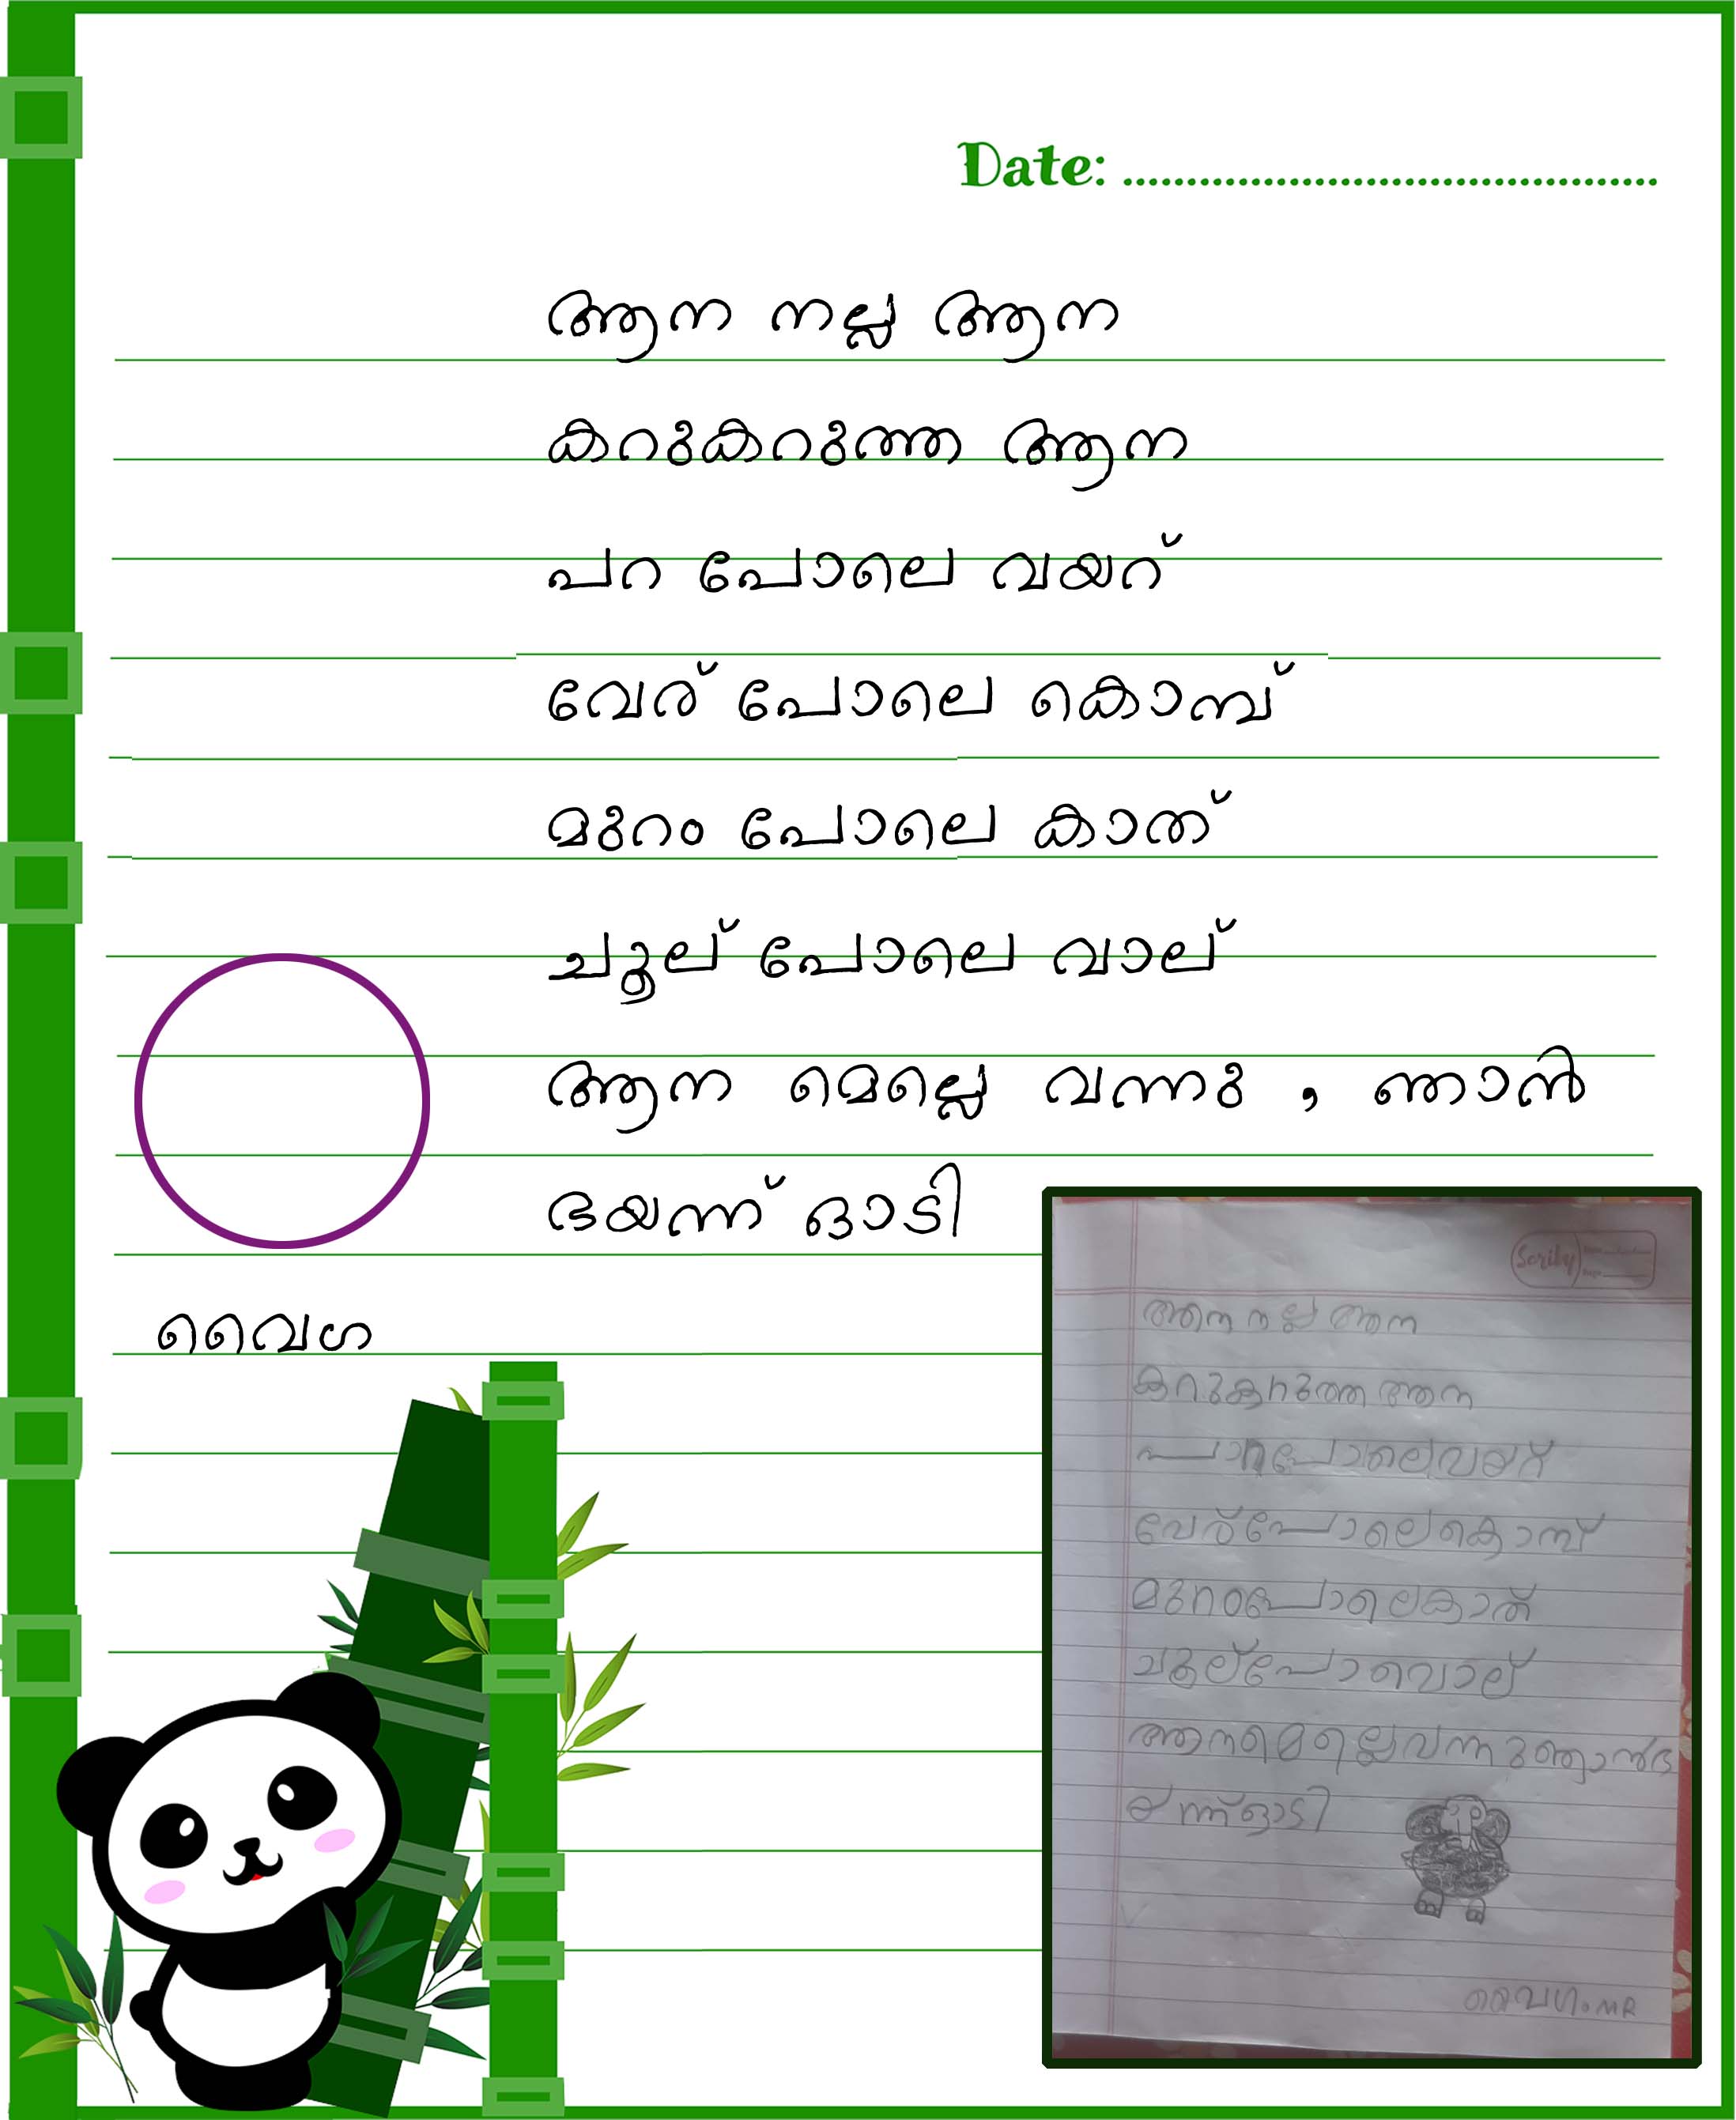 Date: ..........................................
ആന നല്ല ആന
കറുകറുത്ത ആന
പറ പോലെ വയറ്
വേര് പോലെ കൊമ്പ്
മുറം പോലെ കാത്
ചൂല് പോലെ വാല്
ആന മെല്ലെ വന്നു , ഞാൻ
ഭയന്ന് ഓടി
വൈഗ
Scribly
ആന നല്ല ആന
കറുകറുത്ത ആന
പറപോലെവയറ്
വേര്പോലെകൊമ്പ്
മുറംപോലെകാത്
ചൂല്പോവൊല്
ആനമെല്ലെവന്നുഞാൻഭ
യന്ന്ഓടി
വൈഗ.MR